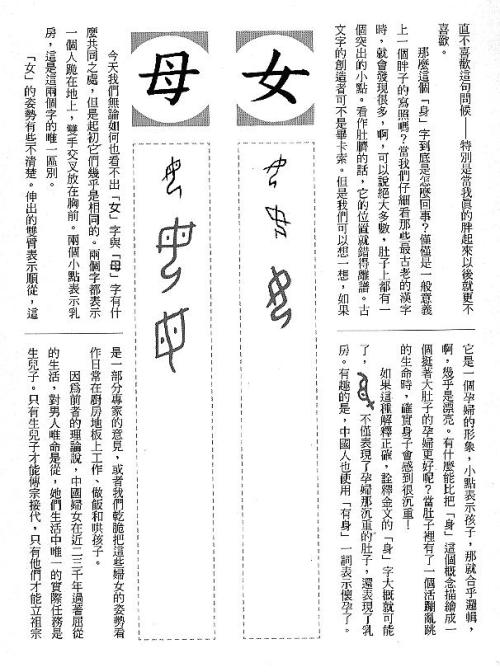 直不喜歡這句問候——特別是當我真的胖起來以後就更不
喜歡。
那麼這個「身」字到底是怎麼回事？僅僅是一般意義
上一個胖子的寫照嗎？當我們仔細看那些最古老的漢字
時，就會發現很多，啊，可以說絕大多數，肚子上都有一
個突出的小點。看作肚臍的話，它的位置就錯得離譜。古
文字的創造者可不是畢卡索。但是我們可以想一想，如果
它是一個孕婦的形象，小點表示孩子，那就合乎邏輯，
啊，幾乎是漂亮。有什麼能比把「身」這個概念描繪成一
個挺著大肚子的孕婦更好呢？當肚子裡有了一個活蹦亂跳
的生命時，確實身子會感到很沉重！
如果這種解釋正確，詮釋金文的「身」字大概就可能
了，不僅表現了孕婦那沉重的肚子，還表現了乳
房。有趣的是，中國人也使用「有身」一詞表示懷孕了。
女
母
今天我們無論如何也看不出「女」字與「母」字有什
麼共同之處，但是起初它們幾乎是相同的。兩個字都表示
一個人跪在地上，雙手交叉放在胸前。兩個小點表示乳
房，這是這兩個字的唯一區別。
「女」的姿勢有些不清楚。伸出的雙臂表示順從，這
是一部分專家的意見，或者我們乾脆把這些婦女的姿勢看
作日常在廚房地板上工作、做飯和哄孩子。
因為前者的理論說，中國婦女在近二三千年過著屈從
的生活，對男人唯命是從，她們生活中唯一的實際任務是
生兒子。只有生兒子才能傳宗接代，只有他們才能立祖宗